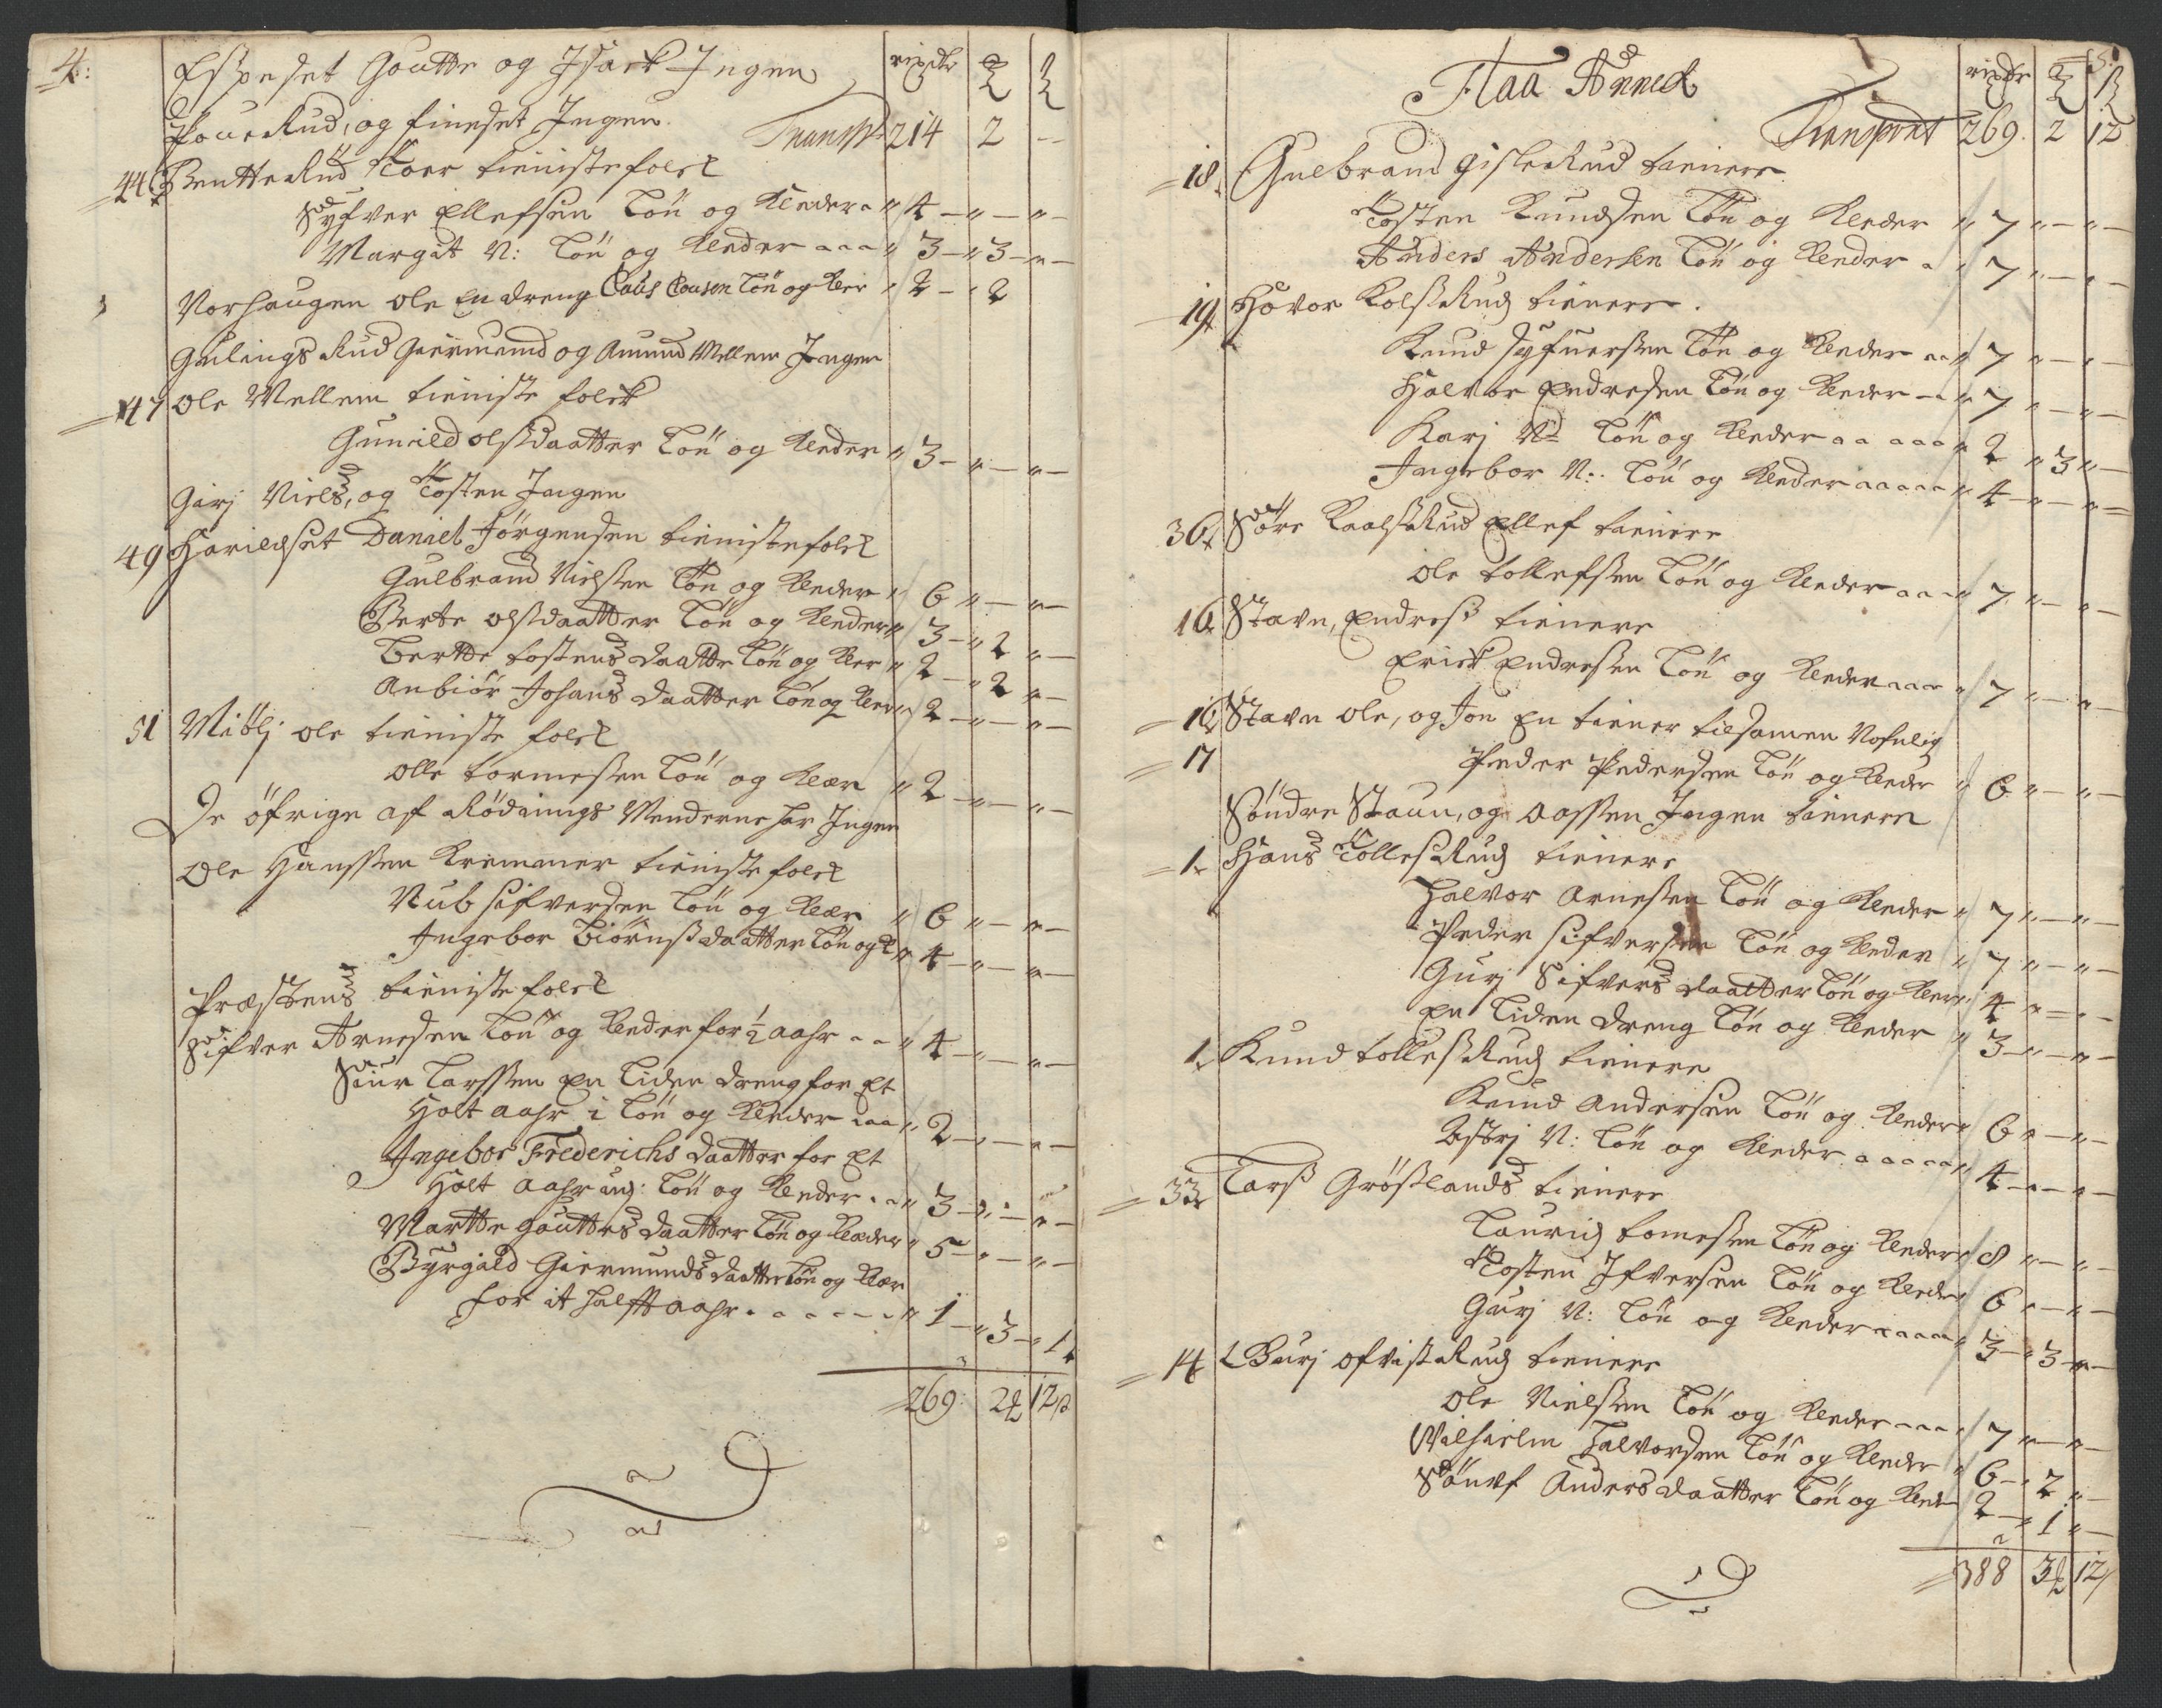 4:
Espeset Goutte og Isack Ingen rixdr
PoueRud, og fineset Ingen Transp 214 2 -
44 BentteRud Toer tieniste folck
Syfver Ellefsen Lön og Kleder " 4 - " - " -
Margit N: Lön og Kleder " 3 - " 3 - " -
Vorhaugen ole En dreng Claus Clousen Lön og Kler " 2 - " 2
GulingsRud Giermund og Amund Mellem Ingen
47 Ole Mellem tieniste folck
Gunild olsdaatter Lön og Kleder " 3 - " - " -
Garj Niels, og Tosten Ingen
49 Harildset Daniel Jörgensen tieniste folck
Gulbrand Nielsen Lön og Kleder " 6 " - " -
Berte olsdaatter Lön og Kleder " 3 - " 2 " -
Bertte tostens daatter Lön og Kler " 2 - " 2 " -
Anbiör Johans daatter Lön og Kler " 2 - " - " -
51 Miölj ole tieniste folck
olle tormesen Lön og Klær " 2 - " - " -
De öfrige af Rödnings Menderne har Ingen
Ole Hanssen Kremmer tieniste folck
Nub sifversen Lön og Klær " 6 " - " -
Ingebor Biörnsdaatter Lön og K " 4 - " - " -
Præstens tieniste folck
Sifver Arnesen Lön og Kleder for ½ aahr " 4 - " - " -
Siur Larssen En Liden dreng for Et
Halt aahr i Lön og Kleder " 2 - " - " -
Ingebor Frederichs daatter for Et
Halt aahr ud: Lön og Kleder " 3 - " - " -
Martte Gouttes daatter Lön og Klæder " 5 - " - " -
Byrgild Giermunds daatter Lön og Klær
for it halft aahr " 1 - " 3 - " 1
269 2 12
Flaa Anned rixdr
Transport 269 2 12
18 Gulbrand GisleRud tienere
Tosten Knudsen Lön og Kleder " 7 " - " -
Anders Andersen Lön og Kleder " 7 " - " -
19 Havor KolsRud tienere
Knud Syfuersen Lön og Kleder " 7 " - " -
Halvor Endresen Lön og Kleder " 7 " - " -
Karj N: Lön og Kleder " 2 " 3 " -
Ingebor N: Lön og Kleder " 4 - " - " -
36 Söre KaalsRud Ellef tienere
Ole tollefsen Lön og Kleder " 7 " - " -
16 Stavn, Endres tienere
Erick Endresen Lön og Kleder " 7 " - " -
16 Stavn ole, og Jon En tiener tilsamen Nofnlig
17 Peder Pedersen Lön og Kleder " 6 " - " -
Söndre Staun, og Aassen Ingen tienere
1 Hans TollesRud tienere
Halvor Arnesen Lön og Kleder " 7 " - " -
Peder sifversen Lön og Kleder " 7 " - " -
Gurj Sifvers daatter Lön og Kleder " 4 " - " -
En Liden dreng Lön og Kleder " 3 - " - " -
1 Knud tollesRud tienere
Knud Andersen Lön og Kleder " 6 " - " -
Astrj N: Lön og Kleder " 4 - " - " -
33 Lars Gröslands tienere
Laurids tomesen Lön og Kleder " 8 " - " -
Tosten Ifversen Lön og Kleder " 6 " - " -
Gurj N: Lön og Kleder " 3 - " 3 " -
14 Burj ofvistRud tienere
Ole Nielsen Lön og Kleder " 7 " - " -
Vilhielm Halvorsen Lön og Kleder " 6 - " 2 " -
Anders daatter Lön og Kleder " 2 - " 1 " -
388 3 12